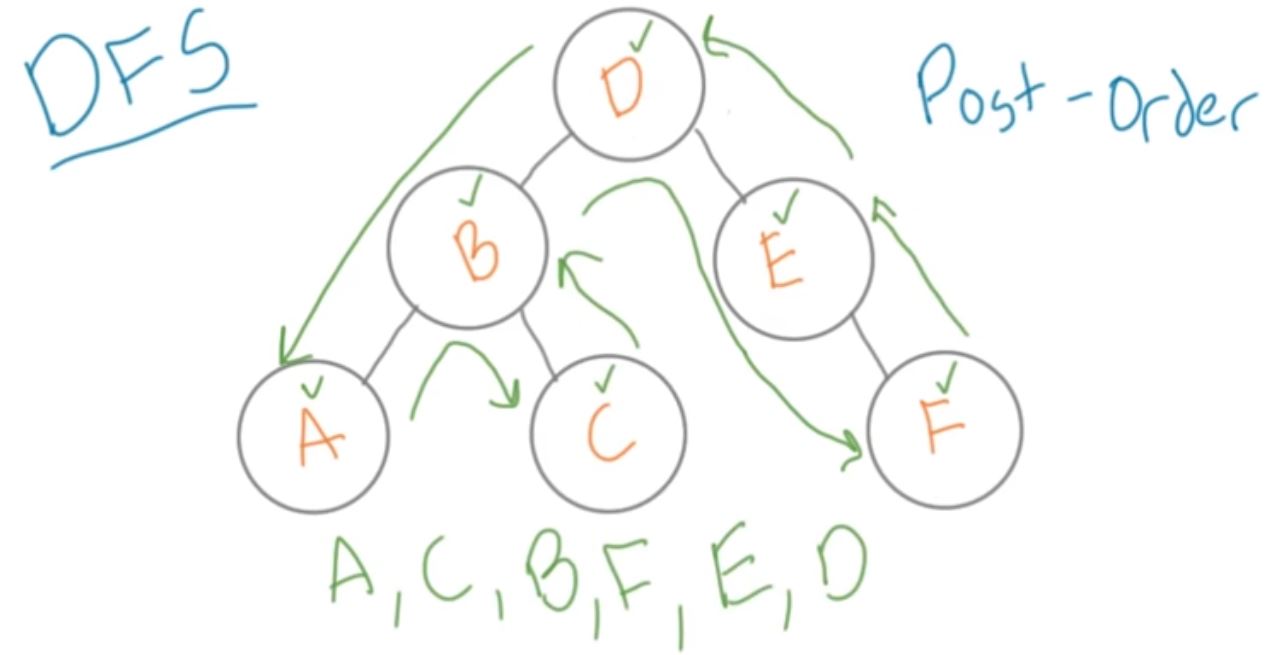 DFS
Post-Order
D
B
E
A
C
F
A, C, B, F, E, D